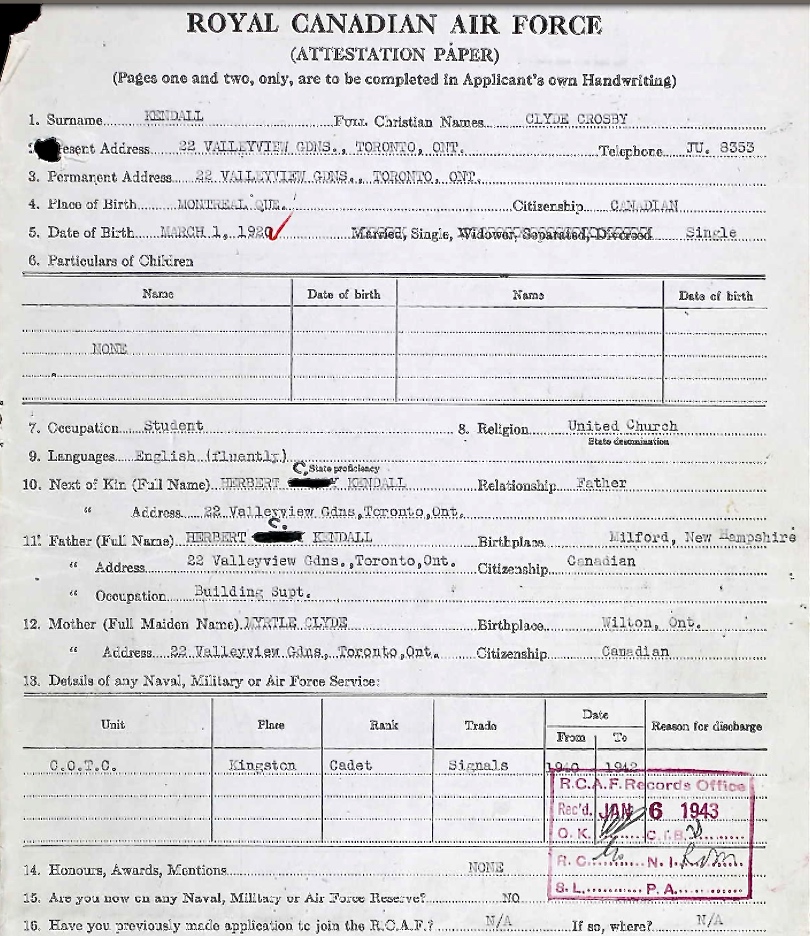 ROYAL CANADIAN AIR FORCE
(ATTESTATION PAPER)
(Pages one and two, only, are to be completed in Applicant's own Handwriting)
1. Surname KENDALL Full Christian Names CLYDE CROSBY
esent Address 22 VALLEYVIEW GDNS., TORONTO, ONT. Telephone JU. 8353
3. Permanent Address 22 VALLEYVIEW GDNS., TORONTO, ONT.
4. Place of Birth MONTREAL QUE. Citizenship CANADIAN
5. Date of Birth MARCH 1, 1920 Married, Single, Widower, Separated, Divorced Single
6. Particulars of Children
Name Date of birth Name Date of birth
NONE
7. Occupation Student 8. Religion United Church
State denomination
9. Languages English (fluently)
C. State proficiency
10. Next of Kin (Full Name) HERBERT KENDALL Relationship Father
" Address 22 Valleyview Gdns, Toronto, Ont.
C.
11. Father (Full Name) HERBERT KENDALL Birthplace Milford, New Hampshire
" Address 22 Valleyview Gdns., Toronto, Ont. Citizenship Canadian
" Occupation Building Supt.
12. Mother (Full Maiden Name) MYRTLE CLYDE Birthplace Wilton, Ont.
" Address 22 Valleyview Gdns, Toronto, Ont. Citizenship Canadian
13. Details of any Naval, Military or Air Force Service:
Unit Place Rank Trade Date Reason for discharge
From To
C.O.T.C. Kingston Cadet Signals 1940 1942
R.C.A.F. Records Office
Rec'd. JAN 6 1943
O. K. C.I.B.
R. C. N. I.
S. L. P. A.
14. Honours, Awards, Mentions NONE
15. Are you now on any Naval, Military or Air Force Reserve? NO
16. Have you previously made application to join the R.C.A.F.? N/A If so, where? N/A